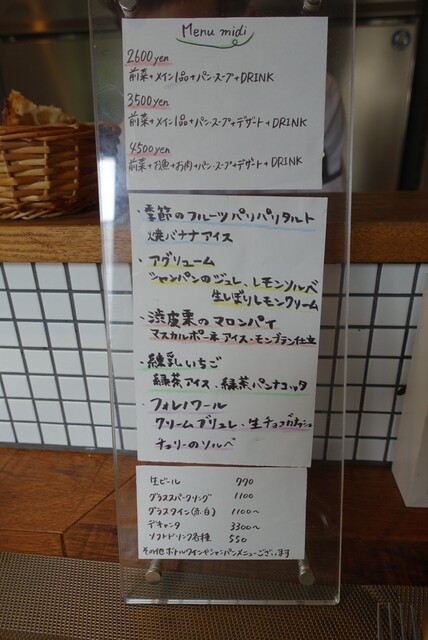 Menu midi
2600yen
前菜+メイン1品+パン・スープ+DRINK
3500yen
前菜+メイン1品+パン・スープ+デザート+DRINK
4500yen
前菜+お魚+お肉+パン・スープ+デザート+DRINK
・季節のフルーツパリパリタルト
焼バナナアイス
・アグリューム
シャンパンのジュレ、レモンソルベ
生しぼりレモンクリーム
・渋皮栗のマロンパイ
マスカルポーネアイス・モンブラン仕立
・練乳いちご
緑茶アイス、緑茶パンナコッタ
・フォレノワール
クリームブリュレ、生チョコガナッシュ
チェリーのソルベ
生ビール 770
グラススパークリング 1100
グラスワイン(赤・白) 1100〜
デキャンタ 3300〜
ソフトドリンク各種 550
その他ボトルワインやシャンパンメニューございます